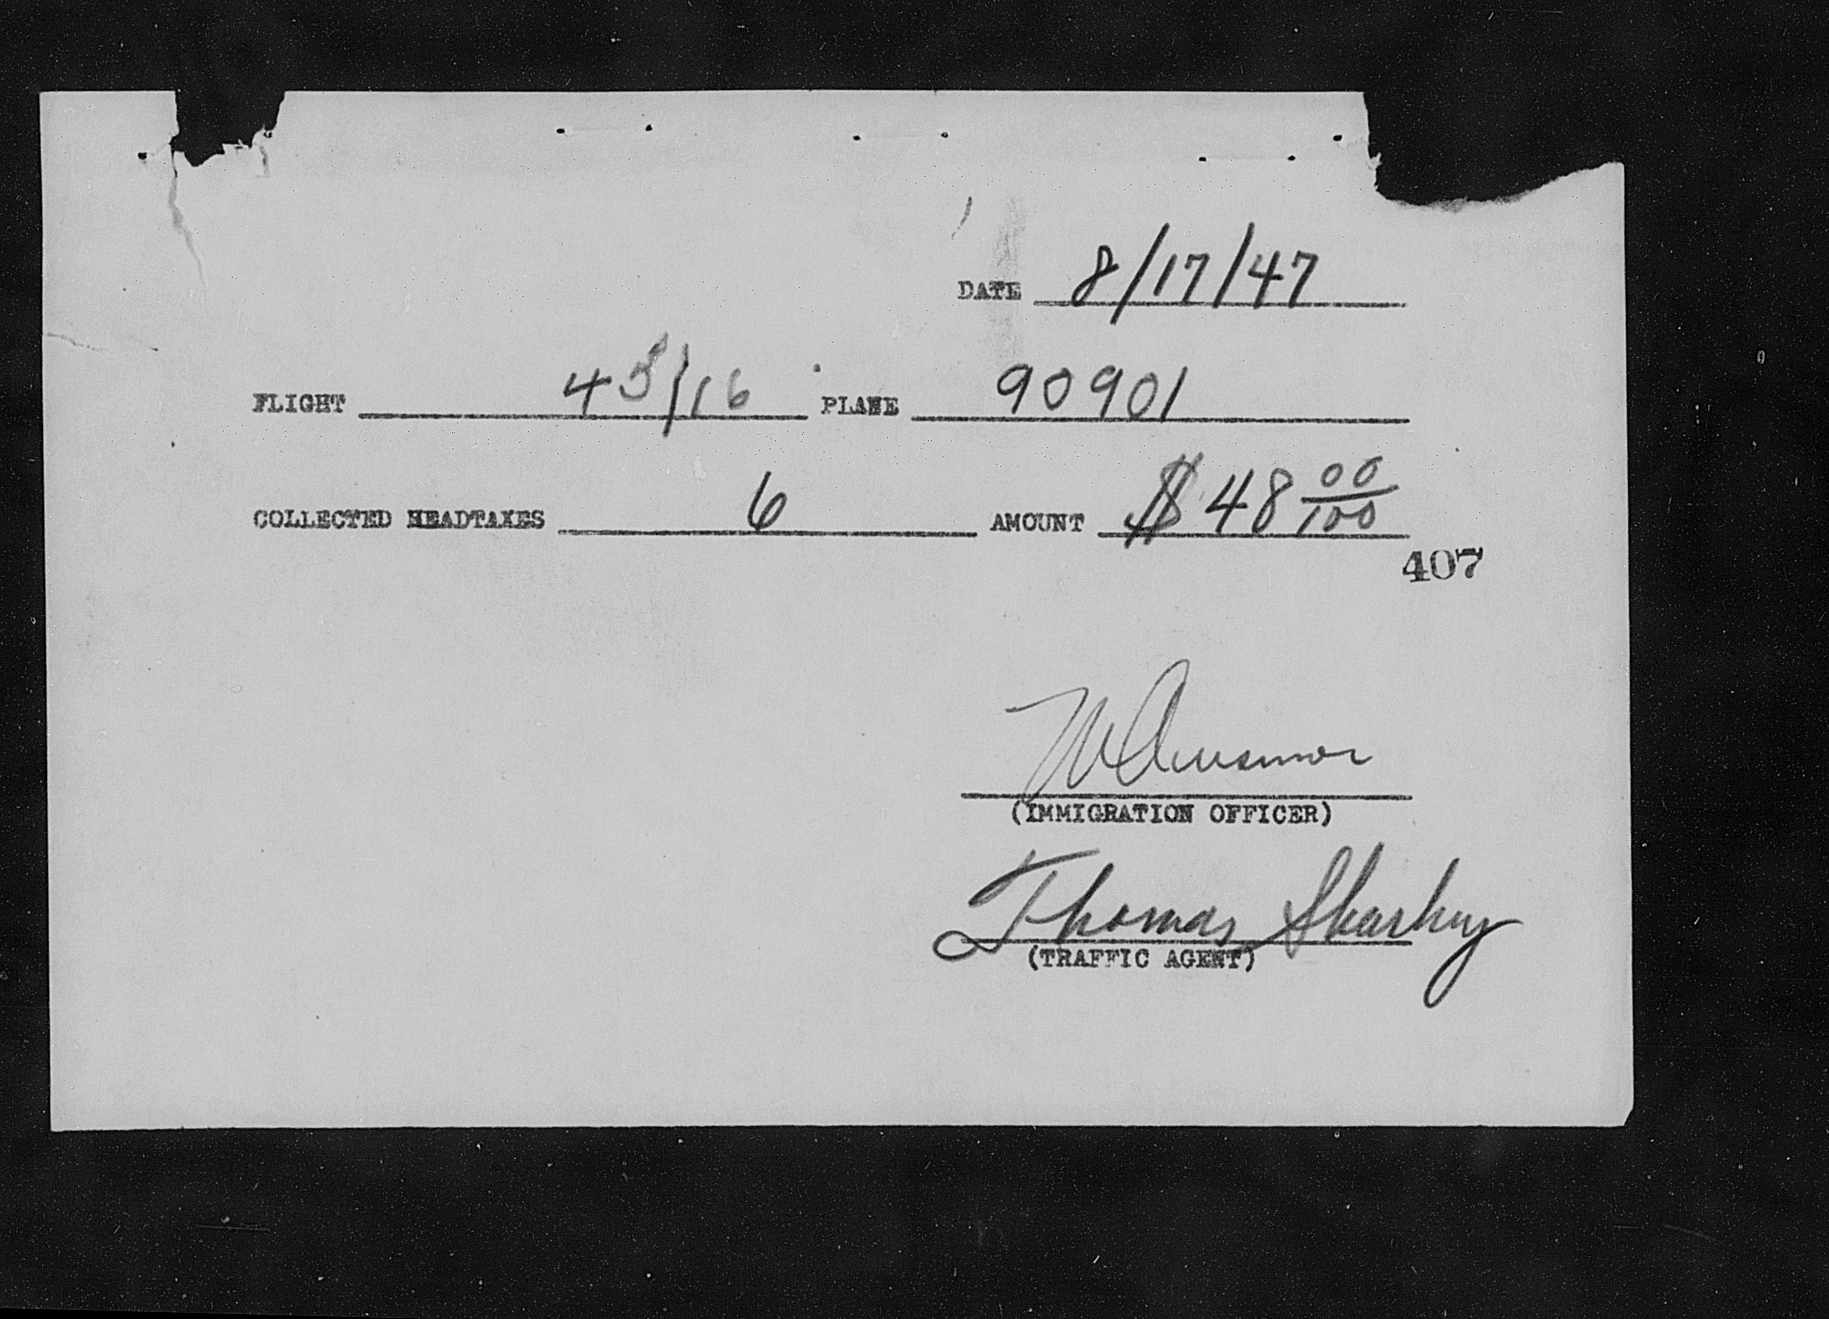 DATE 8/17/47
FLIGHT 45/16 PLANE 90901
COLLECTED HEADTAXES 6 AMOUNT $48 00/100
407
(IMMIGRATION OFFICER)
Thomas Sharkey
(TRAFFIC AGENT)